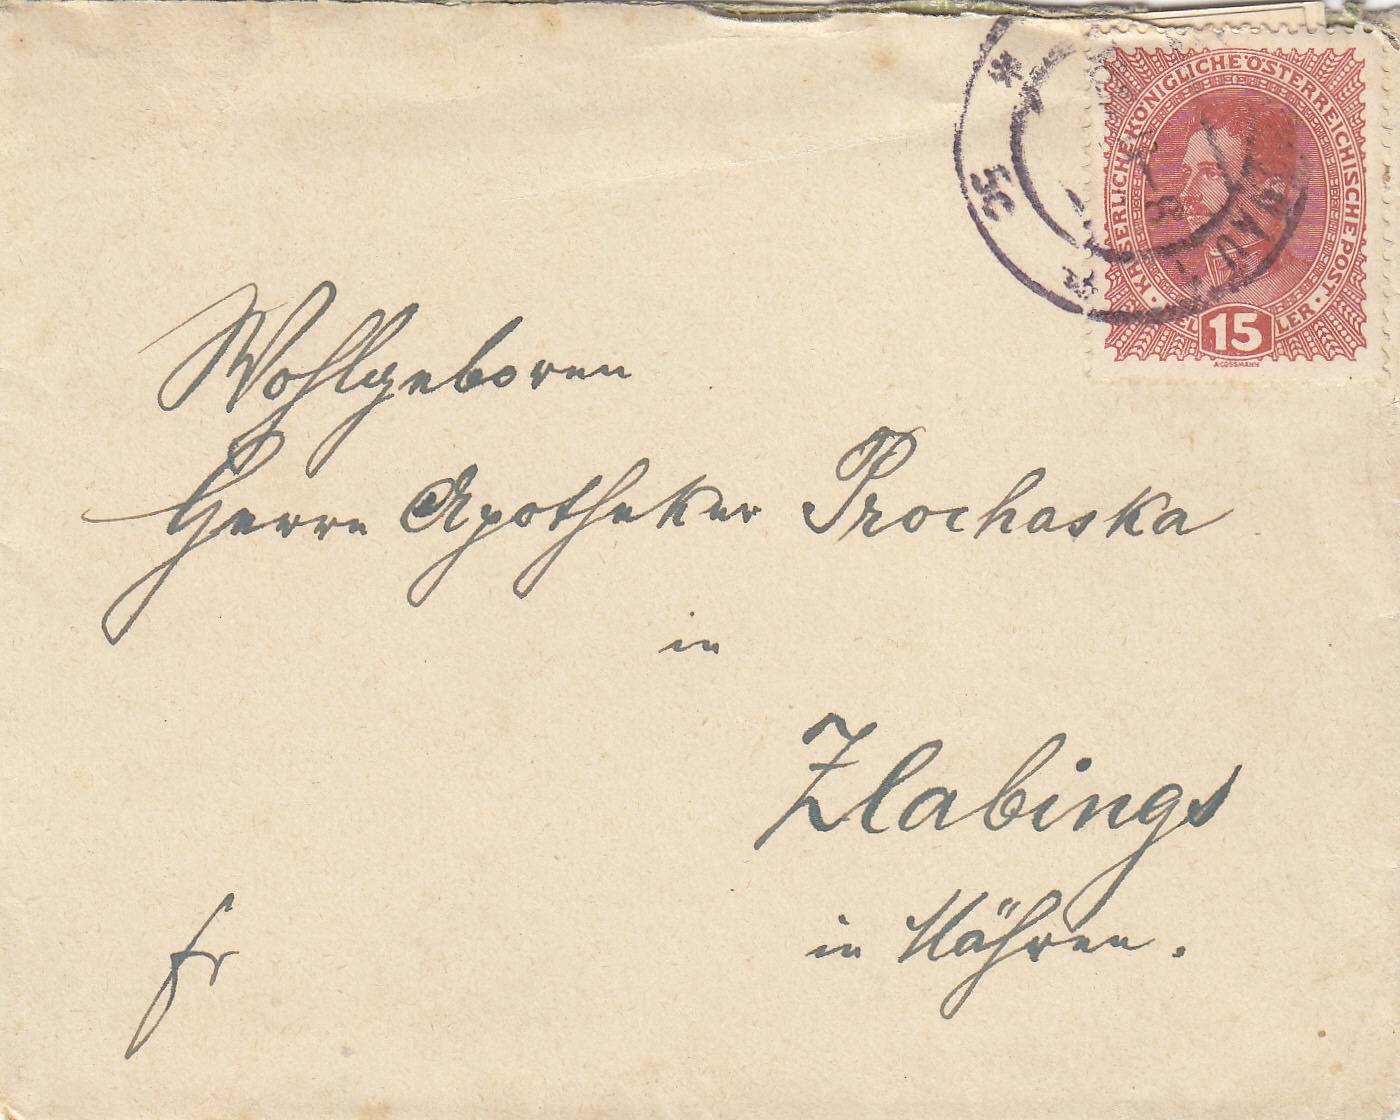 KAISERLICHE KÖNIGLICHE ÖSTERREICHISCHE POST
15
A.COSSMANN
5c
Wohlgeboren
Herrn Apotheker Prochaska
in
Zlabings
in Mähren.
fr